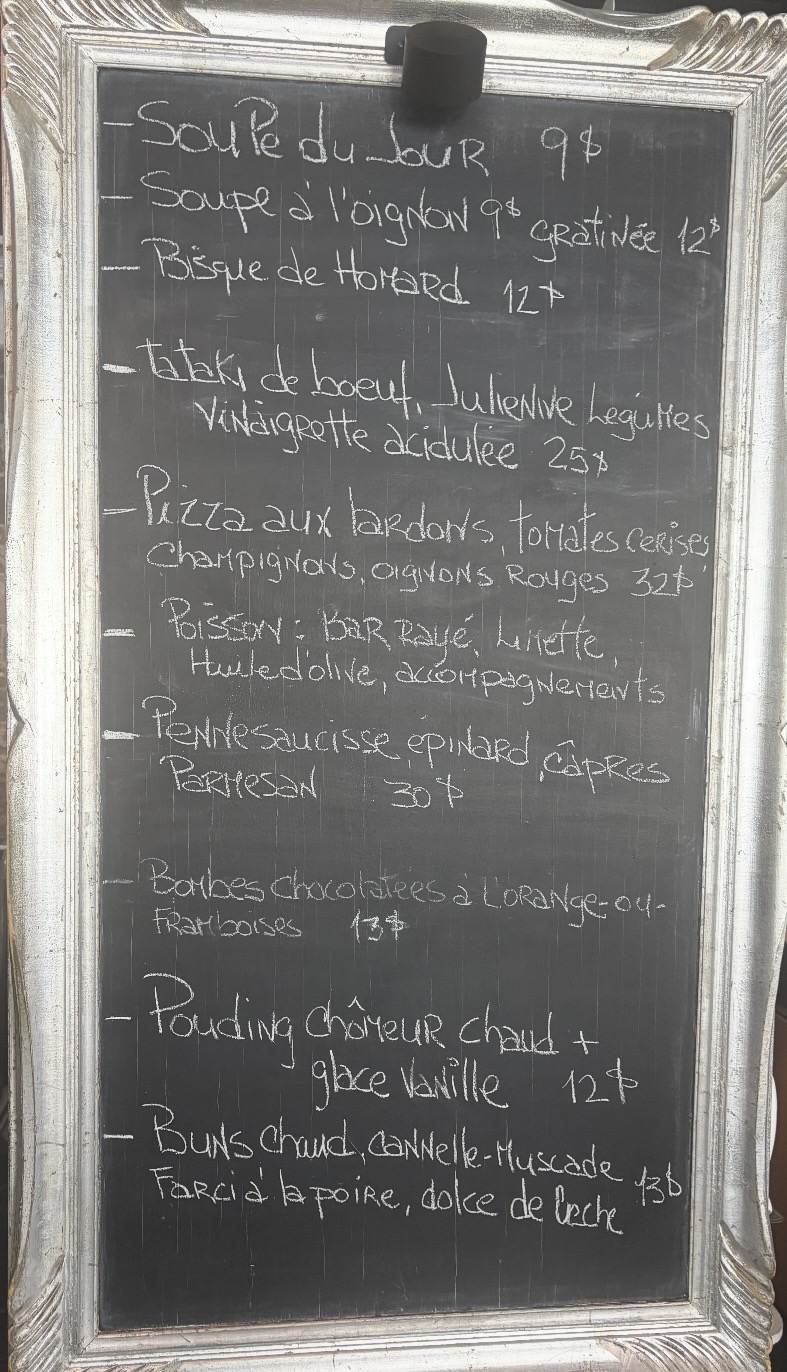 - Soupe du Jour 9$
- Soupe à l'oignon 9$ gratinée 12$
- Bisque de Homard 12$
- tataki de boeuf, Julienne Legumes
Vinaigrette acidulée 25$
- Pizza aux lardons, tomates cerises
Champignons, oignons Rouges 32$
- Poisson : Bar Rayé, Limette,
Huile d'olive, accompagnements
- Penne saucisse, épinard, câpres
Parmesan 30$
- Bombes chocolatées à l'orange-ou-
Framboises 13$
- Pouding chômeur chaud +
glace Vanille 12$
- Buns chaud, cannelle-Muscade
Farci à la poire, dolce de leche 13$